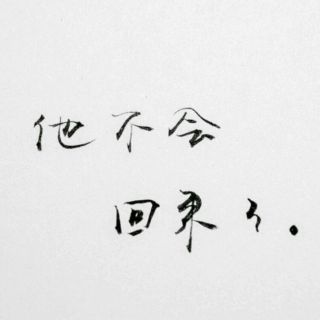 他不会
回来了。